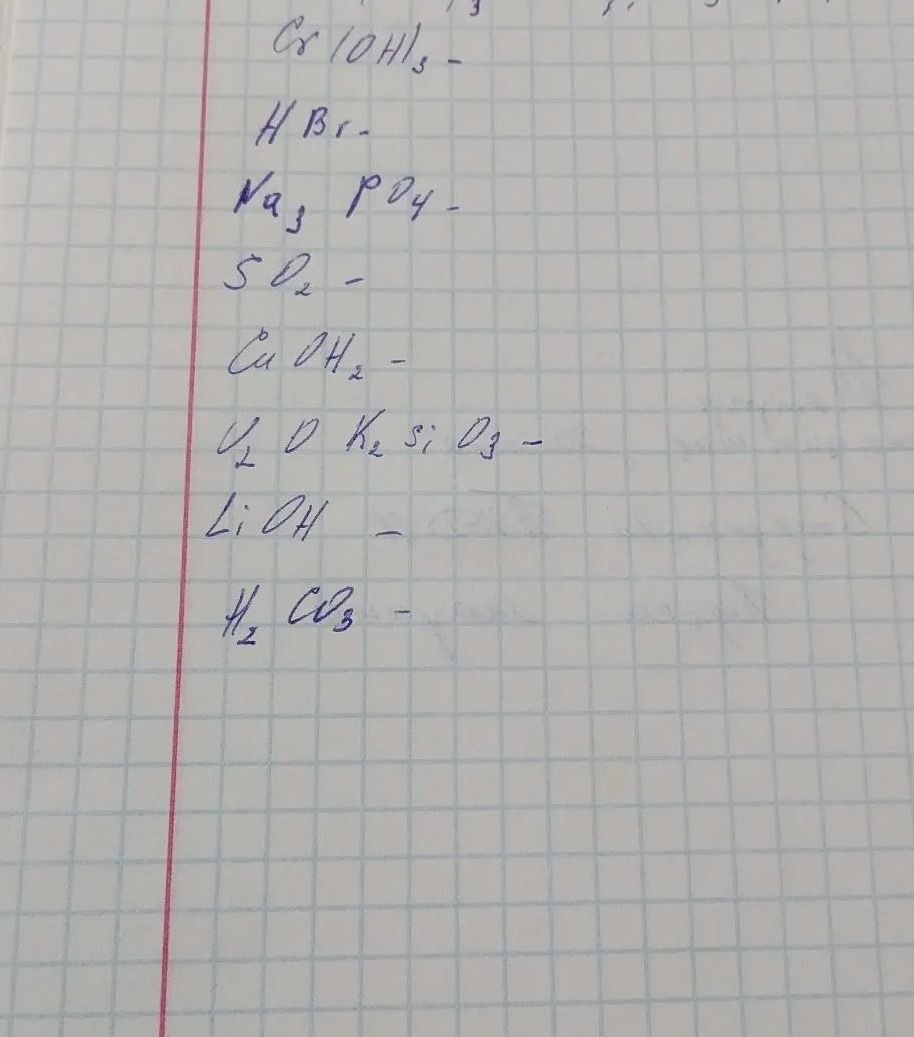 Cr(OH)₃ -
HBr -
Na₃ PO₄ -
SO₂ -
Cu OH₂ -
O K₂ Si O₃ -
LiOH -
H₂ CO₃ -